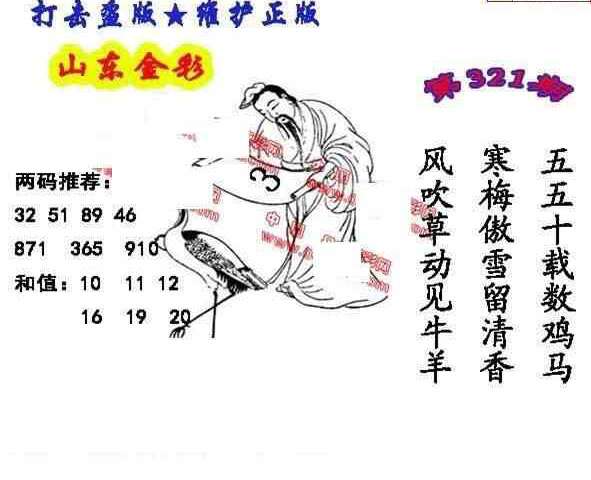 打击盗版★维护正版
山东金彩
第321期
两码推荐：
32 51 89 46
871 365 910
和值：10 11 12
16 19 20
3
五五十载数鸡马
寒梅傲雪留清香
风吹草动见牛羊